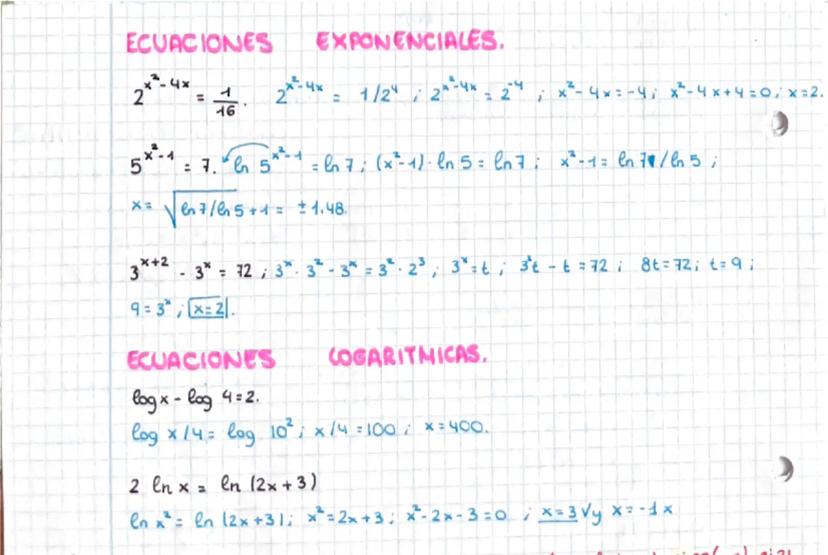 ECUACIONES EXPONENCIALES.
2^(x²-4x) = 1/16. 2^(x²-4x) = 1/2⁴ ; 2^(x²-4x) = 2⁻⁴ ; x²-4x=-4; x²-4x+4=0; x=2.
5^(x²-1) = 7. ln 5^(x²-1) = ln 7; (x²-1)·ln 5 = ln 7; x²-1 = ln 7/ln 5;
x = √(ln 7/ln 5+1) = ±1,48.
3^(x+2) - 3^x = 72; 3^x·3² - 3^x = 3²·2³; 3^x=t; 3²t - t = 72; 8t=72; t=9;
9=3^x; x=2.
ECUACIONES LOGARITMICAS.
log x - log 4=2.
log x/4 = log 10²; x/4=100; x=400.
2 ln x = ln (2x+3)
ln x² = ln (2x+3); x²=2x+3; x²-2x-3=0; x=3 √ y x=-1 x